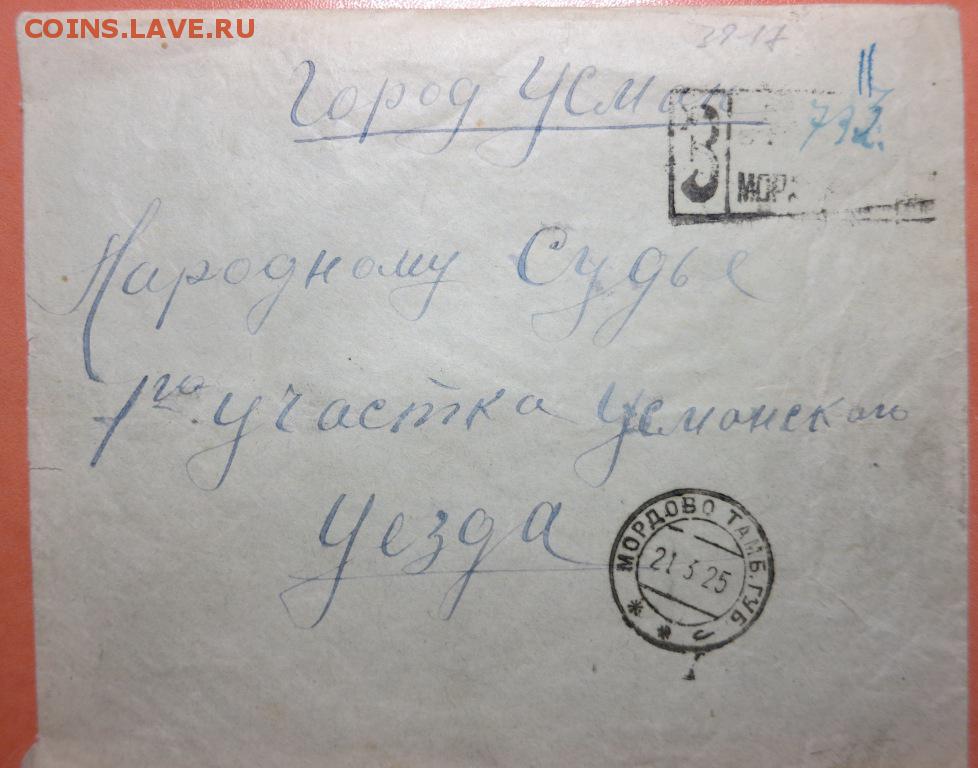 COINS.LAVE.RU
39-17
Город Усмань
З
732.
МОР
Народному Судье
1го участка Усманского
Уезда
МОРДОВО ТАМБ.ГУБ.
21 3 25